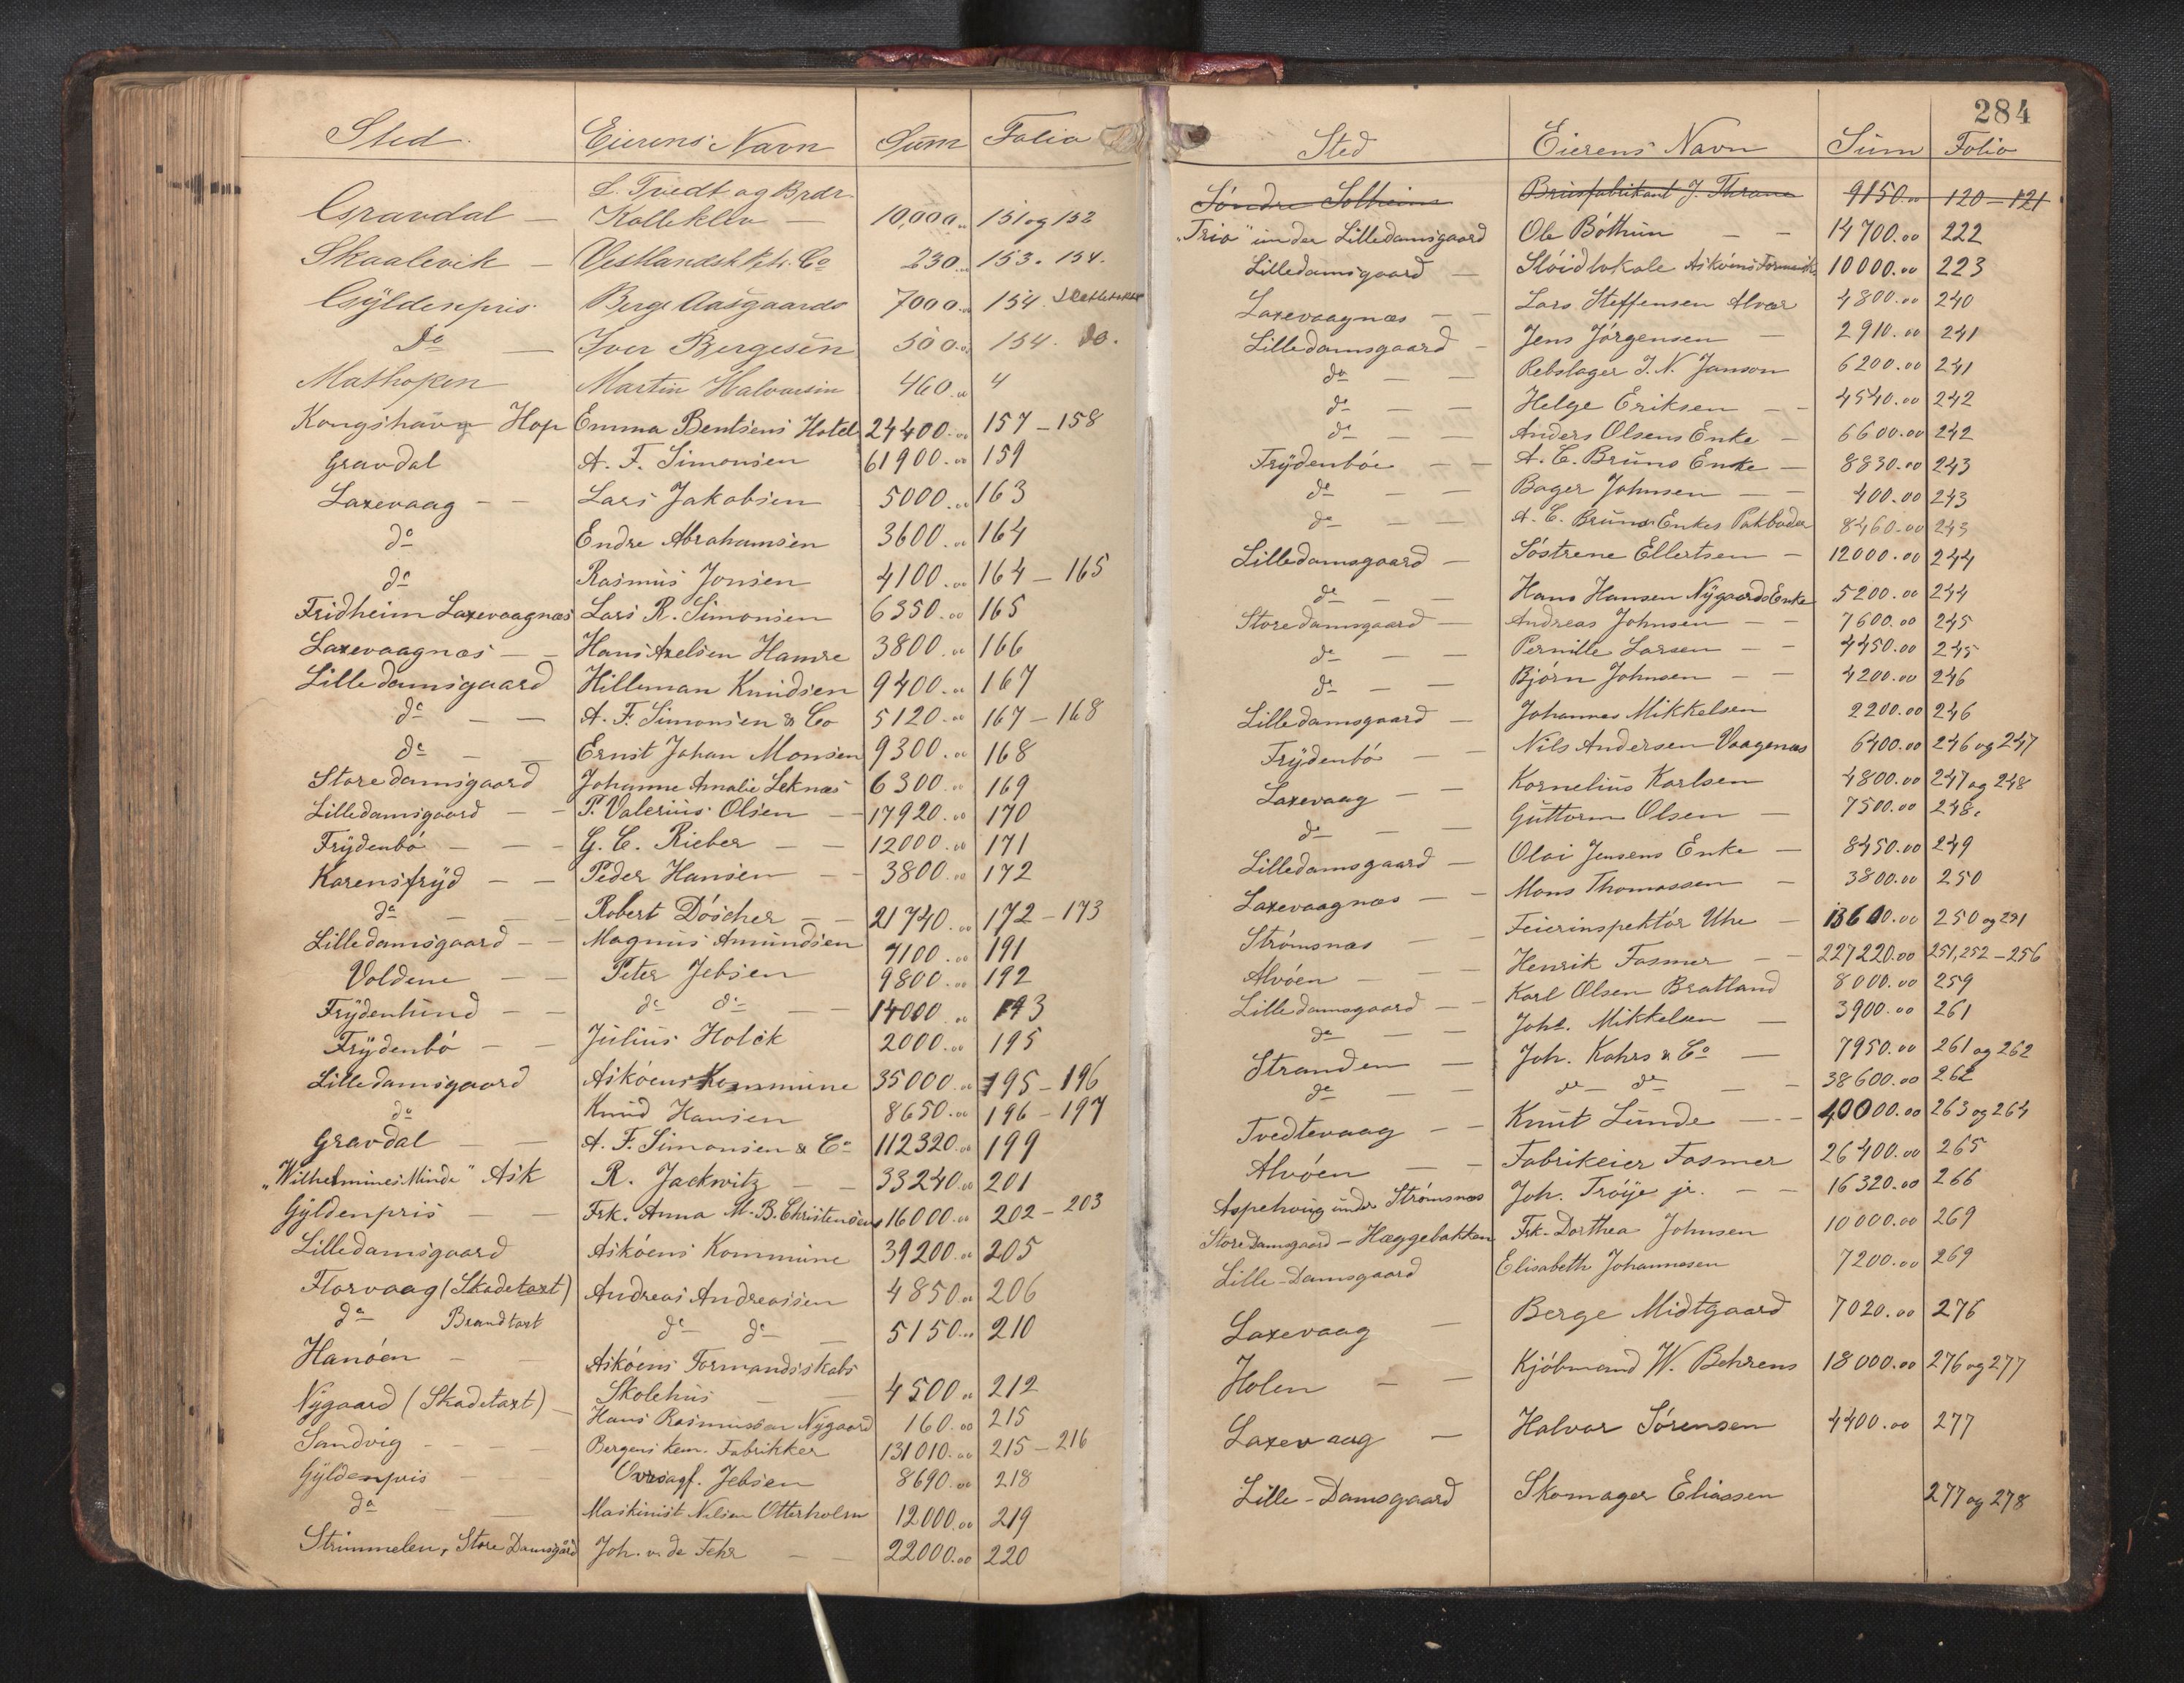 Sted. Eierens Navn Sum Folio
L. Tvedt og Brdr.
Gravdal — Kolleklev — 10,000.00 151 og 152
Skaalevik — Vestlandsk Co 230.00 153. 154.
Gyldenpris Berge Aasgaards 7000.00 154.
do — Iver Bergesen 500.00 154. do.
Mathopen Martin Halvorsen 460.00 4
Kongshaug Hop Emma Bentsens Hotel 24400.00 157 – 158
Gravdal A. F. Simonsen 61900.00 159
Laxevaag – – Lars Jakobsen 5000.00 163
do Endre Abrahamsen 3600.00 164
do Rasmus Jonsen 4100.00 164 – 165
Fridheim Laxevaagnæs Lars R. Simonsen 6350.00 165
Laxevaagnæs — – Hans Axelsen Hamre 3800.00 166
Lille damsgaard Hilleman Knudsen 9400.00 167
do — — A. F. Simonsen & Co 5120.00 167 – 168
do — — Ernst Johan Monsen 9300.00 168
Store damsgaard Johanne Amalie Leknæs 6300.00 169
Lilledamsgaard — – P. Valerius Olsen – 17920.00 170
Frydenbó — — – G. C. Rieber — – 12000.00 171
Karensfryd — – Peder Hansen – – 3800.00 172
do — — – Robert Dóscher — – 21740.00 172 – 173
Lilledamsgaard – – Magnus Amundsen 7100.00 191
Voldene — – Peter Jebsen 9800.00 192
Frydenlund — – do do — – 14000.00 193
Frydenbó — – Julius Holck 2000.00 195
Lilledamsgaard Askóens Kommune 35000.00 195 – 196
do Knud Hansen 8650.00 196 – 197
Gravdal — – A. F. Simonsen & Co 112320.00 199
„Wilhelmines Minde" Ask R. Jackwitz – – 33240.00 201
Gyldenpris — – Frk. Anna M. B. Christensens 16000.00 202 – 203
Lilledamsgaard Askóens Kommune 39200.00 205
Florvaag (Skadetaxt) Andreas Andreassen 4850.00 206
do Brandtaxt do do — 5150.00 210
Hanóen – – Askóens Formandsskabs
Skolehus — 4500.00 212
Nygaard (Skadetaxt) – Hans Rasmussen Nygaard 160.00 215
Sandvig – – – Bergens kem. Fabrikker 131010.00 215 – 216
Gyldenpris – – Jebsen 8690.00 218
do — — Maskinist Nilsen Otterholm 12000.00 219
Strimmelen, Store Damsgård Joh. v. de Fehr – – 22000.00 220
284
Sted Eierens Navn Sum Folio
Söndre Solheim Brusfabrikant J. Thrane 9150.00 120 – 121
„Trio" under Lilledamsgaard Ole Bóthun – – 14700.00 222
Lilledamsgaard — Slóidlokale Askóens Formansk 10000.00 223
Laxevaagnæs — – Lars Steffensen Alvær 4800.00 240
Lilledamsgaard – Jens Jórgensen — 2910.00 241
do — — Rebslager J. N. Janson 6200.00 241
do — — Helge Eriksen – – 4540.00 242
do — — Anders Olsens Enke – 6600.00 242
Frydenbóe – – A. C. Bruns Enke – 8830.00 243
do — — Bager Johnsen – – 400.00 243
do — — A. C. Bruns Enkes Pakboder 8460.00 243
Lilledamsgaard — Sóstrene Ellertsen – 12000.00 244
do — — Hans Hansen Nygaards Enke 5200.00 244
Storedamsgaard — Andreas Johnsen – – 7600.00 245
do — — Pernille Larsen – – 4450.00 245
do — — Bjórn Johnsen – – 4200.00 246
Lilledamsgaard — Johannes Mikkelsen 2200.00 246
Frydenbó — – Nils Andersen Vaagenæs 6400.00 246 og 247
Laxevaag – – Kornelius Karlsen 4800.00 247 og 248
do — — Guttorm Olsen – 7500.00 248.
Lilledamsgaard – Olai Jensens Enke – 8450.00 249
Laxevaagnæs – – Mons Thomassen – 3800.00 250
Strómsnæs — – Feierinspektór Uhe – 13600.00 250 og 251
Alvóen — — Henrik Fasmer – – 227220.00 251, 252 – 256
Lille damsgaard – – Karl Olsen Bratland 8000.00 259
do — — Johs. Mikkelsen — 3900.00 261
Stranden — Joh. Kahrs & Co — 7950.00 261 og 262
do — — do do — – 38600.00 262
Tvedtevaag – – Knut Lunde — – 40000.00 263 og 264
Alvóen — – Fabrikeier Fasmer 26400.00 265
Aspehoug under Strómsnæs Joh. Tróye jr. – – 16320.00 266
Store Damsgaard – Hæggebakken Frk. Dorthea Johnsen 10000.00 269
Lille-Damsgaard Elisabeth Johannesen 7200.00 269
Laxevaag — Berge Midtgaard 7020.00 276
Holen – – Kjóbmand W. Behrens 18000.00 276 og 277
Laxevaag — Halvor Sórensen 4400.00 277
Lille-Damsgaard Skomager Eliassen 277 og 278